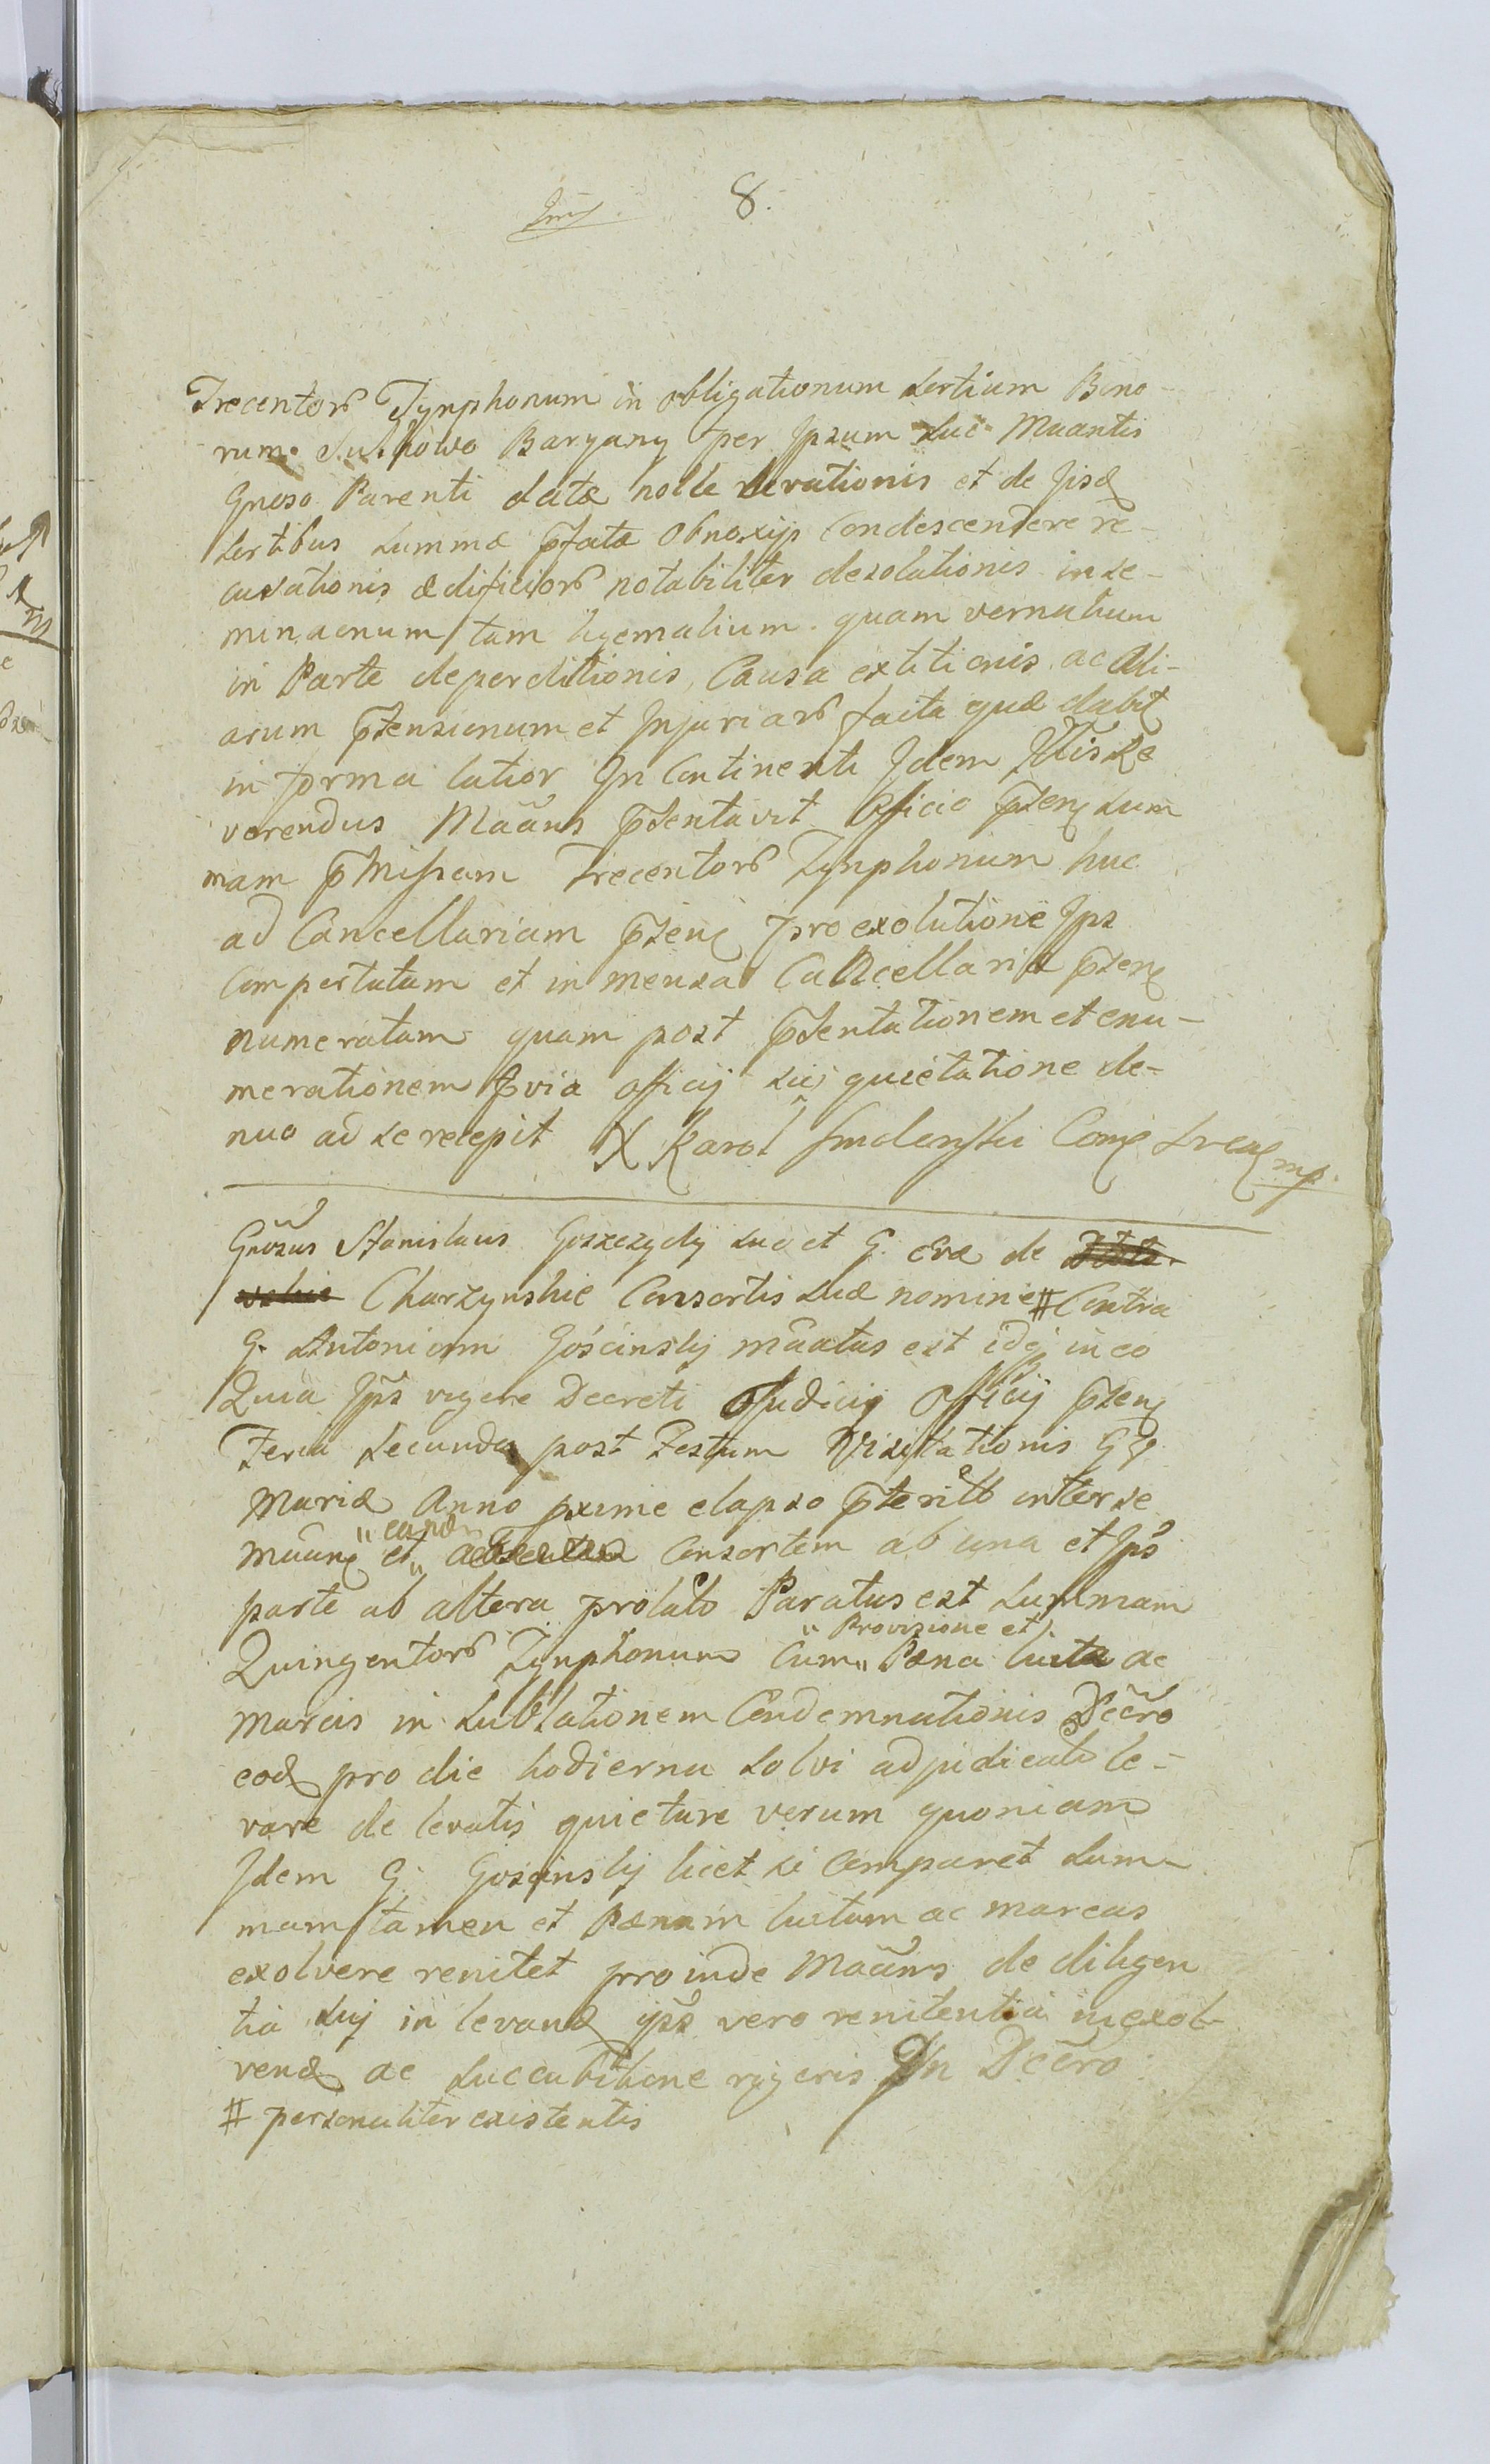 8.
Trecentorum Tynphonum in obligationum sertium Bono-
rum Sulkowo Baryany per Ipsum suc Maantis
Gnoso Parenti datæ nolle levationis et de Iisd
sertibus summæ pfatæ obnoxijs Condescendere re-
cusationis ædificior notabiliter desolationis inse-
minaonum tam hyemalium quam vernalium
in Parte deperditionis, Causa extitionis, ac Ali-
arum ptensionum et Injuriar facta quæ dabit
in forma latior In Continenti Idem Illis Re
verendus Maans psentavit Officio psen sum
mam pmissam Trecentor Tynphonum huc
ad Cancellariam psen pro exolutione Ips
Comportatam et in mensa Cancellariæ psen
numeratam quam post psentationem et enu-
merationem pvia officij sui quietatione de-
nuo ad se recepit X Karol Smolenski Comp Srea mp.
Gnosus Stanislaus Goszczydy suo et G. Evæ de
Charzynskie Consortis suæ nomine # Contra
G. Antonium Gościnsky maatus est idq in eo
Quia Ips vigore Decreti Judicij Officij psen
Feria secunda post Festum Visitationis G V
Mariæ Anno pxime elapso pterito inter se
Maan et eand Consortem ab una et Ips
parte ab altera prolato Paratus est summam
Quingentor Tynphonum Cum " Provisione et " Pæna luita ac
marcis in sublationem Condemnationis Dcero
eod pro die hodierna solvi adjudicato le-
vare de levatis quietare verum quoniam
Idem G. Goscinsky licet si Comparet sum-
mam tamen et Pænam luitam ac marcas
exolvere renitet proinde Maans de diligen
tia sui in levand ips vero renitentia in exol-
vend ac succubitione rigoris In Dcero
# personaliter existentis